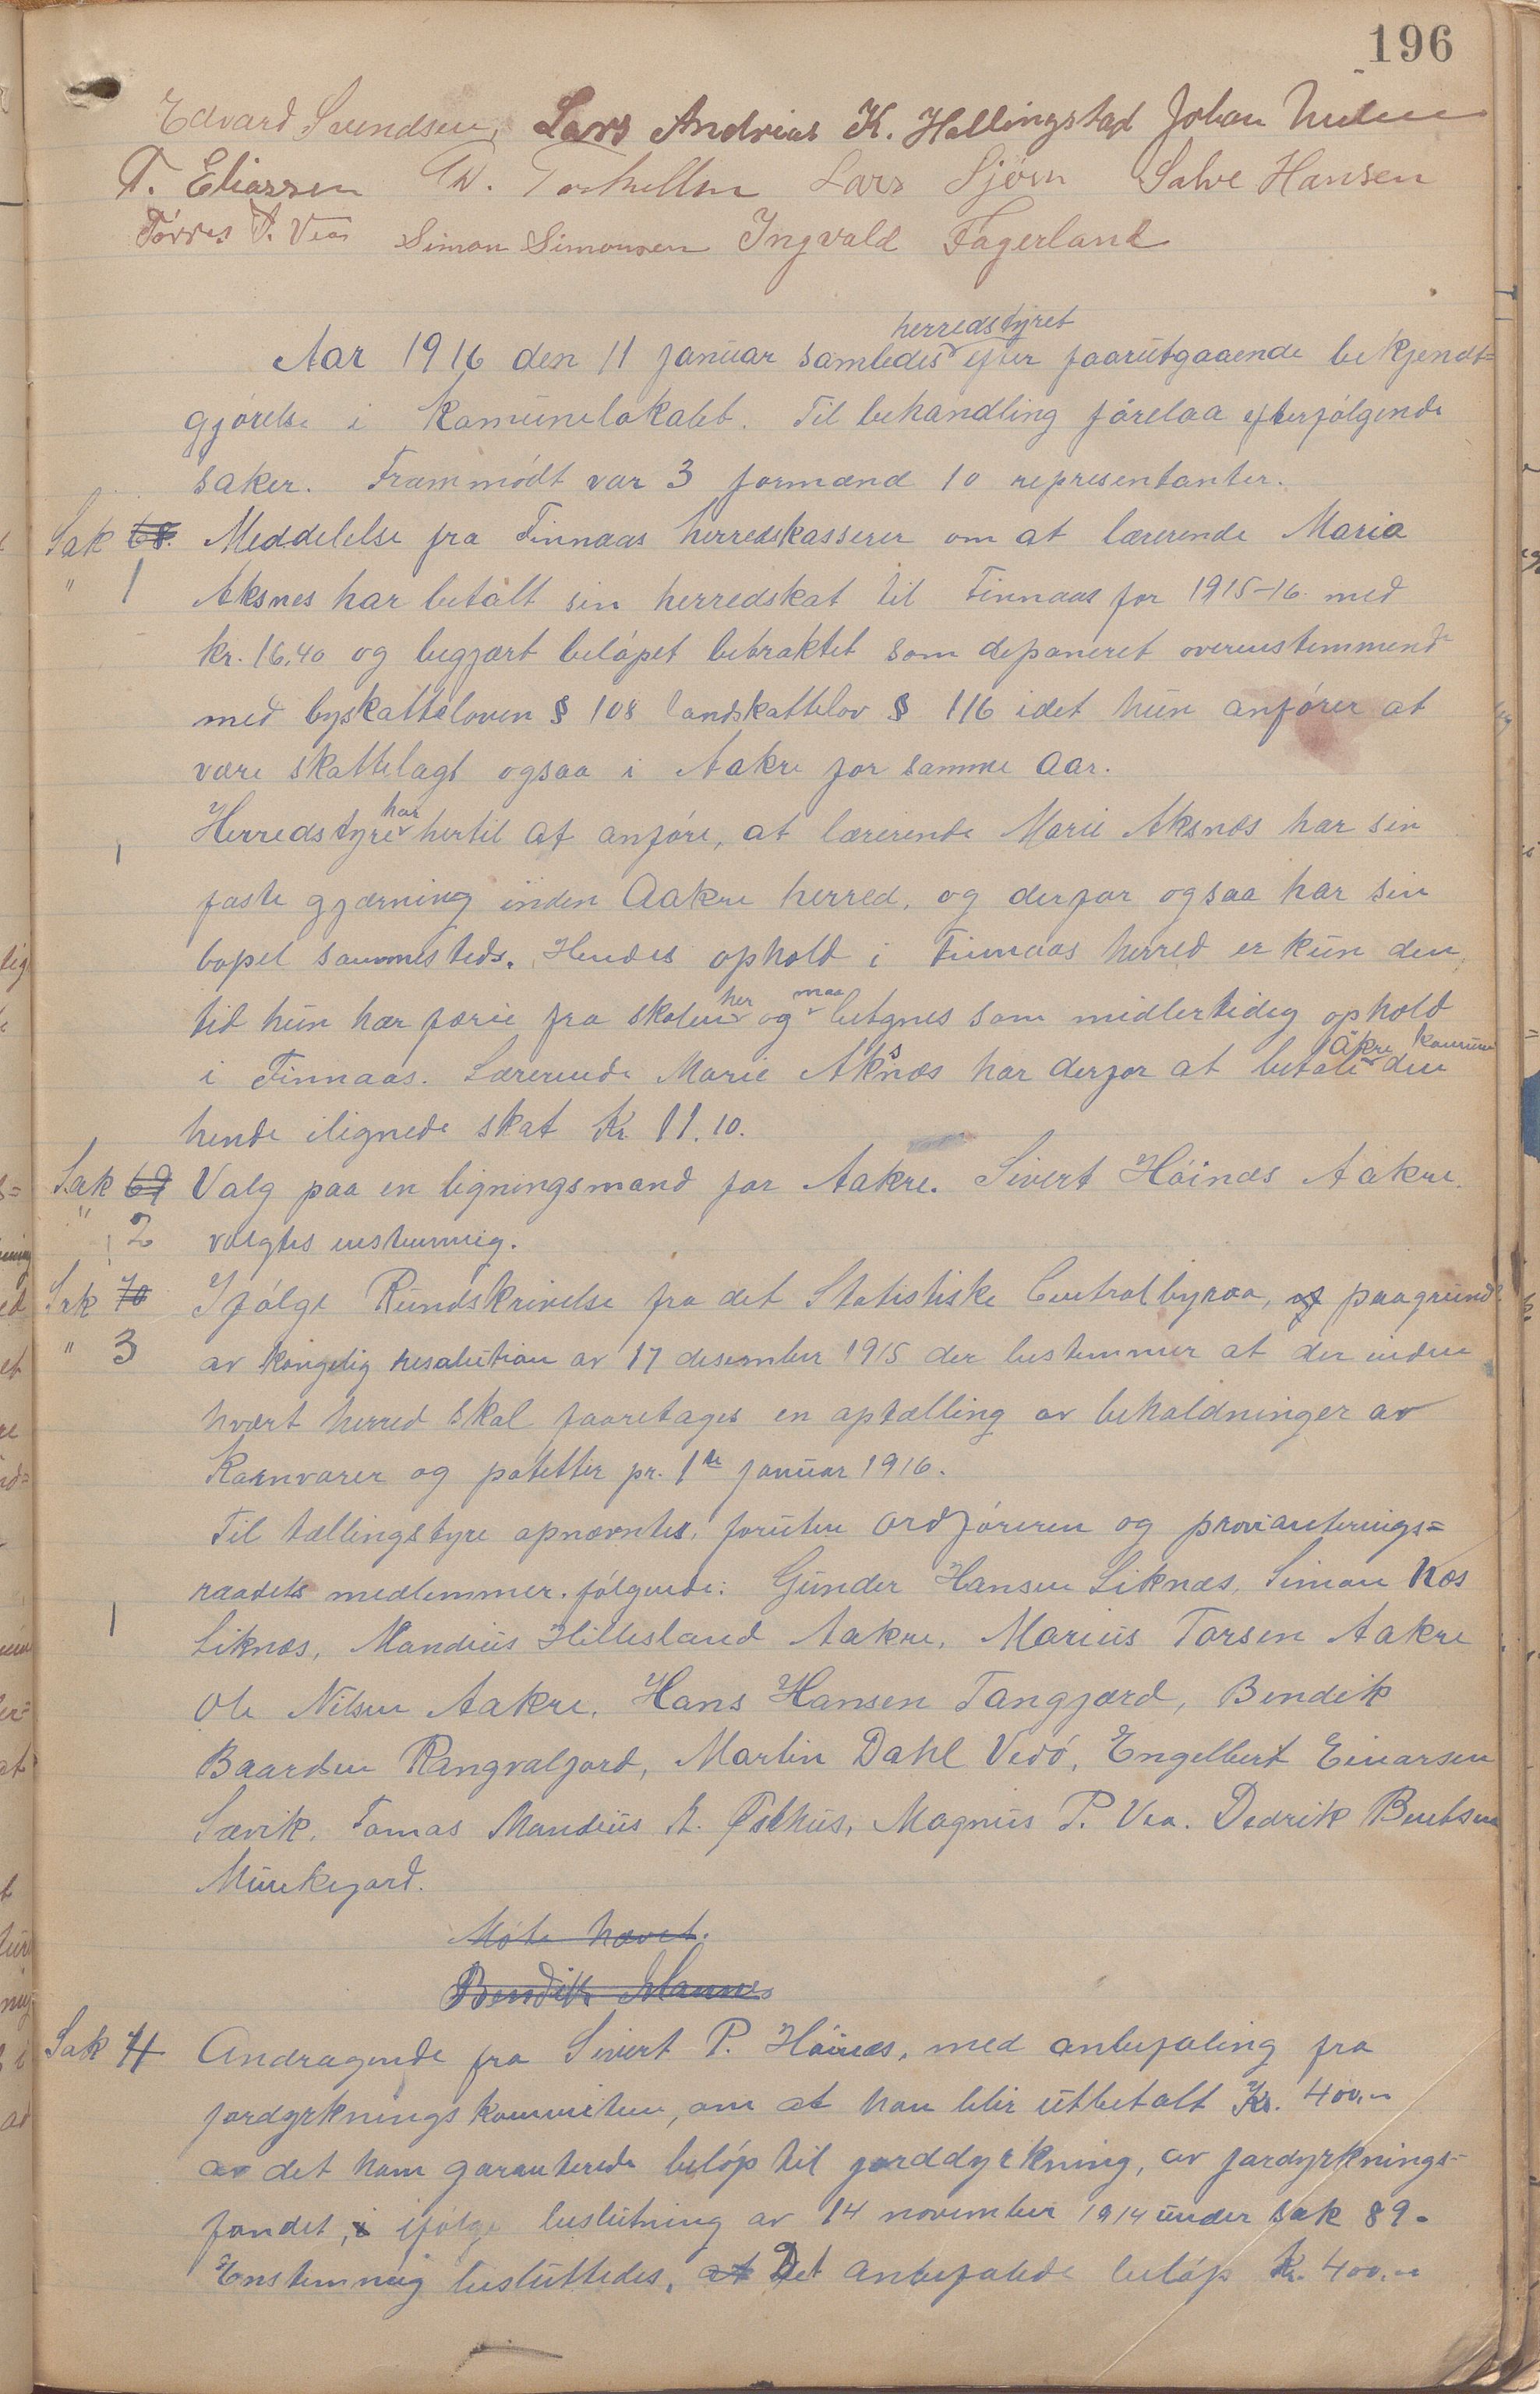 196
Edvard Svendsen, Lars Andreas K. Hallingstad Johan
T. Eliassen Th. Torkellsen Lars Sjøen Salve Hansen
Tørres P. Vea Simon Simonsen Ingvald Fagerland
herredstyret
Aar 1916 den 11 januar samledes efter foorutgaaende bekjendt=
gjørelse i Komunelokalet. Til behandling førelaa efterfølgende
saker. Frammødt var 3 formænd 10 representanter.
Sak 68. Meddelelse fra Finnaas herredskasserer om at lærerende Maria
" 1 Aksnes har betalt sin herredskat til Finnaas for 1915-16 med
kr. 16,40 og begjært beløpet betraktet som deponeret overenstemmende
med byskatteloven § 108 landskattelov § 116 idet hun anfører at
være skattelagt ogsaa i Aakre for samme aar.
har
Herredstyre hertil at anføre, at lærerende Marie Aksnes har sin
faste gjærning inden Aakre herred, og derfor ogsaa har sin
bopel sammesteds. Hendes ophold i Finnaas herred er kun den
her maa
tid hun har færie fra skolen og betgnes som midlertidig ophold
Åkre komune
i Finnaas. Lærerende Marie Aksnæs har derfor at betale den
hende ilignede skat Kr. 11.10.
Sak 69 Valg paa en ligningsmand for Aakre. Sivert Høinæs Aakre.
" 2 valgtes enstemmig.
Sak 70 Ifølge Rundskrivelse fra det Statistiske Centralbyraa, af paagrund
" 3 av kongelig resolution av 17 desember 1915 der bestemmer at der inden
hvært herred skal fooretages en optælling av beholdninger av
Kornvarer og potetter pr. 1ste januar 1916.
Til tællingstyre opnævntes, foruten ordføreren og provianterings=
raadets medlemmer. følgende: Gunder Hansen Liknæs, Simon Næs
Liknæs, Mandius Hillesland Aakre, Marius Torsen Aakre
Ole Nilsen Aakre, Hans Hansen Tangjærd, Bendik
Baardsen Rangvaljord, Martin Dahl Vedø, Engelbert Einarsen
Sævik, Tomas Mandius A. Østhus, Magnus P. Vea. Dedrik Bentsen
Munkejord.
Møte hævet.
Bendik Mannes
Sak 71 Andragende fra Sivert P. Høinæs, med anbefaling fra
jordyrkningskommiteen, om at han blir utbetalt Kr. 400,-
av det ham garanterede beløp til jorddyrkning, av jordyrknings=
fondet, i ifølge beslutning av 14 november 1914 under sak 89.
Enstemmig besluttedes, at Det anbefalede beløp kr. 400.-